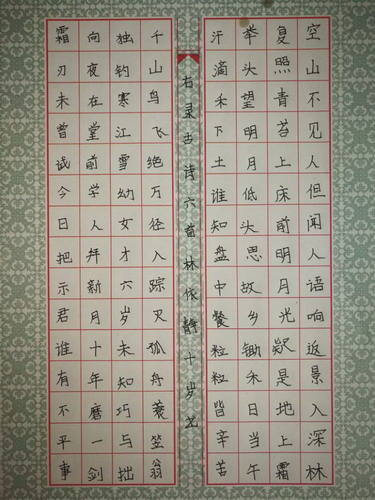 空山不见人但闻人语响返景入深林
复照青苔上床前明月光疑是地上霜
举头望明月低头思故乡锄禾日当午
汗滴禾下土谁知盘中餐粒粒皆辛苦
右录古诗六首林依静十岁
千山鸟飞绝万径人踪灭孤舟蓑笠翁
独钓寒江雪幼女才六岁未知巧与拙
向夜在堂前学人拜新月十年磨一剑
霜刃未曾试今日把示君谁有不平事